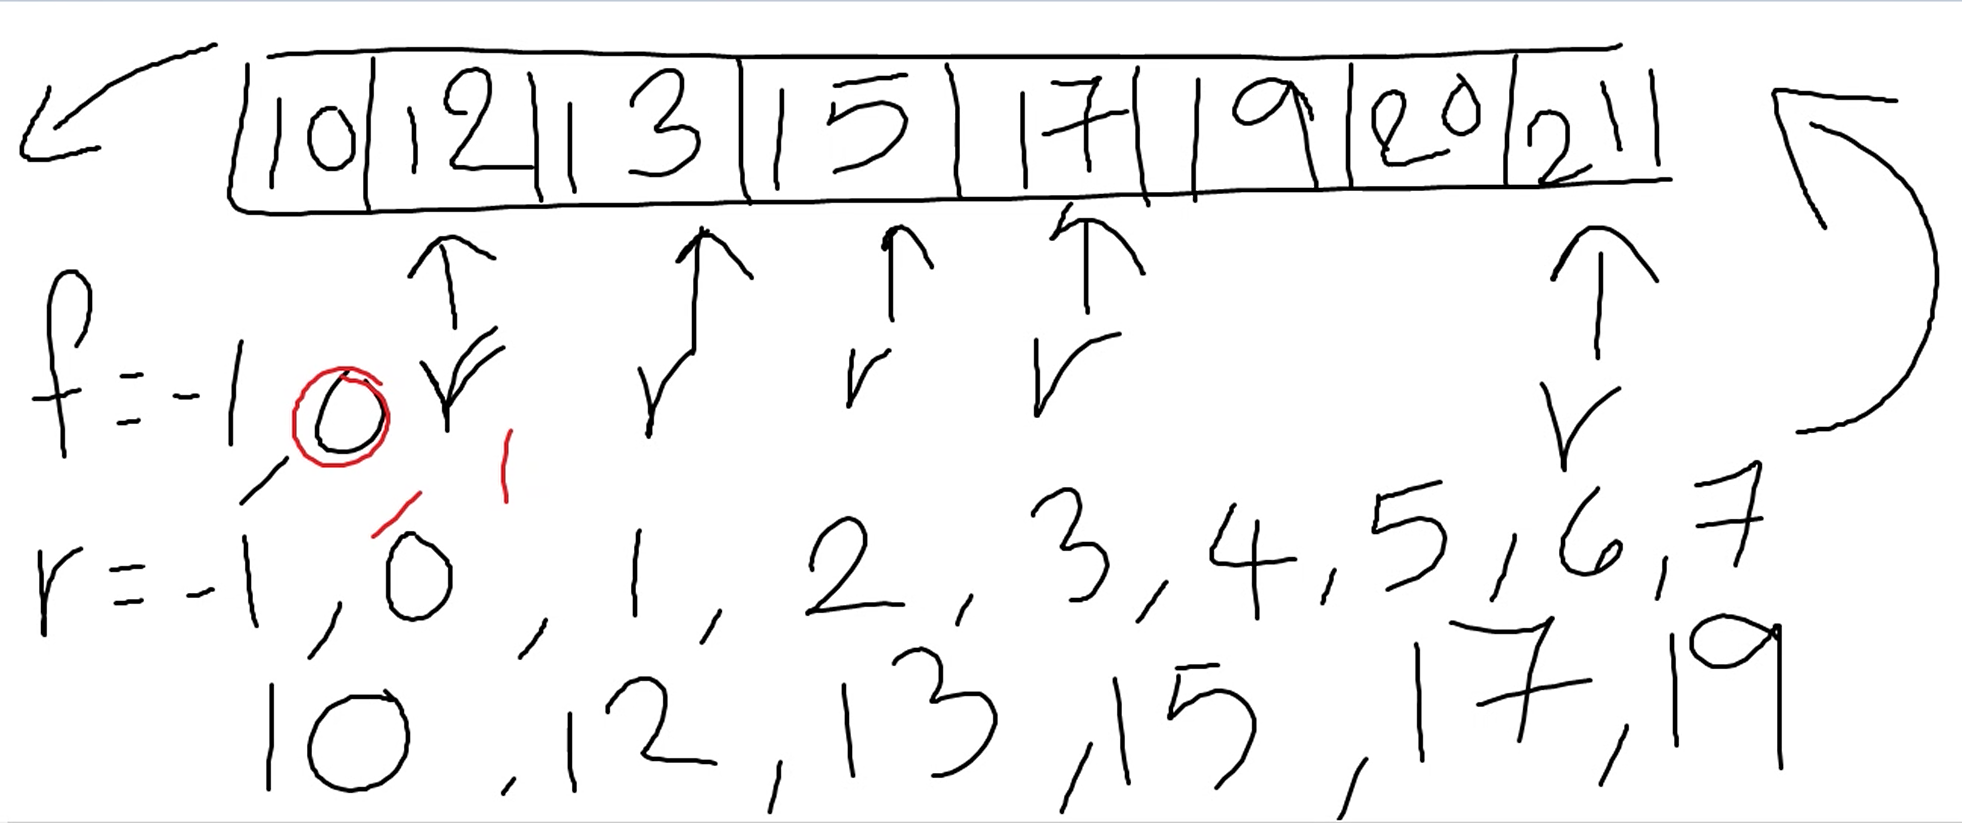 10 12 13 15 17 19 20 21
f = -1 0
1
r = -1, 0, 1, 2, 3, 4, 5, 6, 7
10, 12, 13, 15, 17, 19